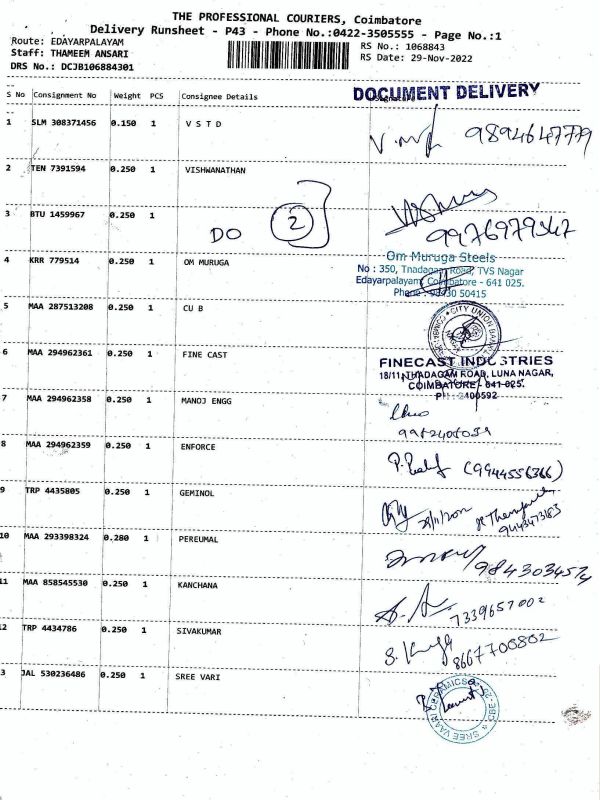 THE PROFESSIONAL COURIERS, Coimbatore
Delivery Runsheet - P43 - Phone No.:0422-3505555 - Page No.:1
Route: EDAYARPALAYAM
RS No.: 1068843
Staff: THAMEEM ANSARI
RS Date: 29-Nov-2022
DRS No.: DCJB106884301
DOCUMENT DELIVERY
S No Consignment No Weight PCS Consignee Details
1 SLM 308371456 0.150 1 V S T D
9894647779
2 TEN 7391594 0.250 1 VISHWANATHAN
3 BTU 1459967 0.250 1
DO 2
9976979347
4 KRR 779514 0.250 1 OM MURUGA
Om Muruga Steels
No : 350, Tnadagam Road, TVS Nagar
Edayarpalayam, Coimbatore - 641 025.
Phone : 50415
5 MAA 287513208 0.250 1 CU B
CITY UNION BANK
6 MAA 294962361 0.250 1 FINE CAST
FINECAST INDUSTRIES
18/11, THADAGAM ROAD, LUNA NAGAR,
COIMBATORE - 641 025.
PH : 2400592
7 MAA 294962358 0.250 1 MANOJ ENGG
8 MAA 294962359 0.250 1 ENFORCE
(9944556366)
9 TRP 4435805 0.250 1 GEMINOL
10 MAA 293398324 0.280 1 PEREUMAL
9843034574
11 MAA 858545530 0.250 1 KANCHANA
7339657002
12 TRP 4434786 0.250 1 SIVAKUMAR
8667700802
3 JAL 530236486 0.250 1 SREE VARI